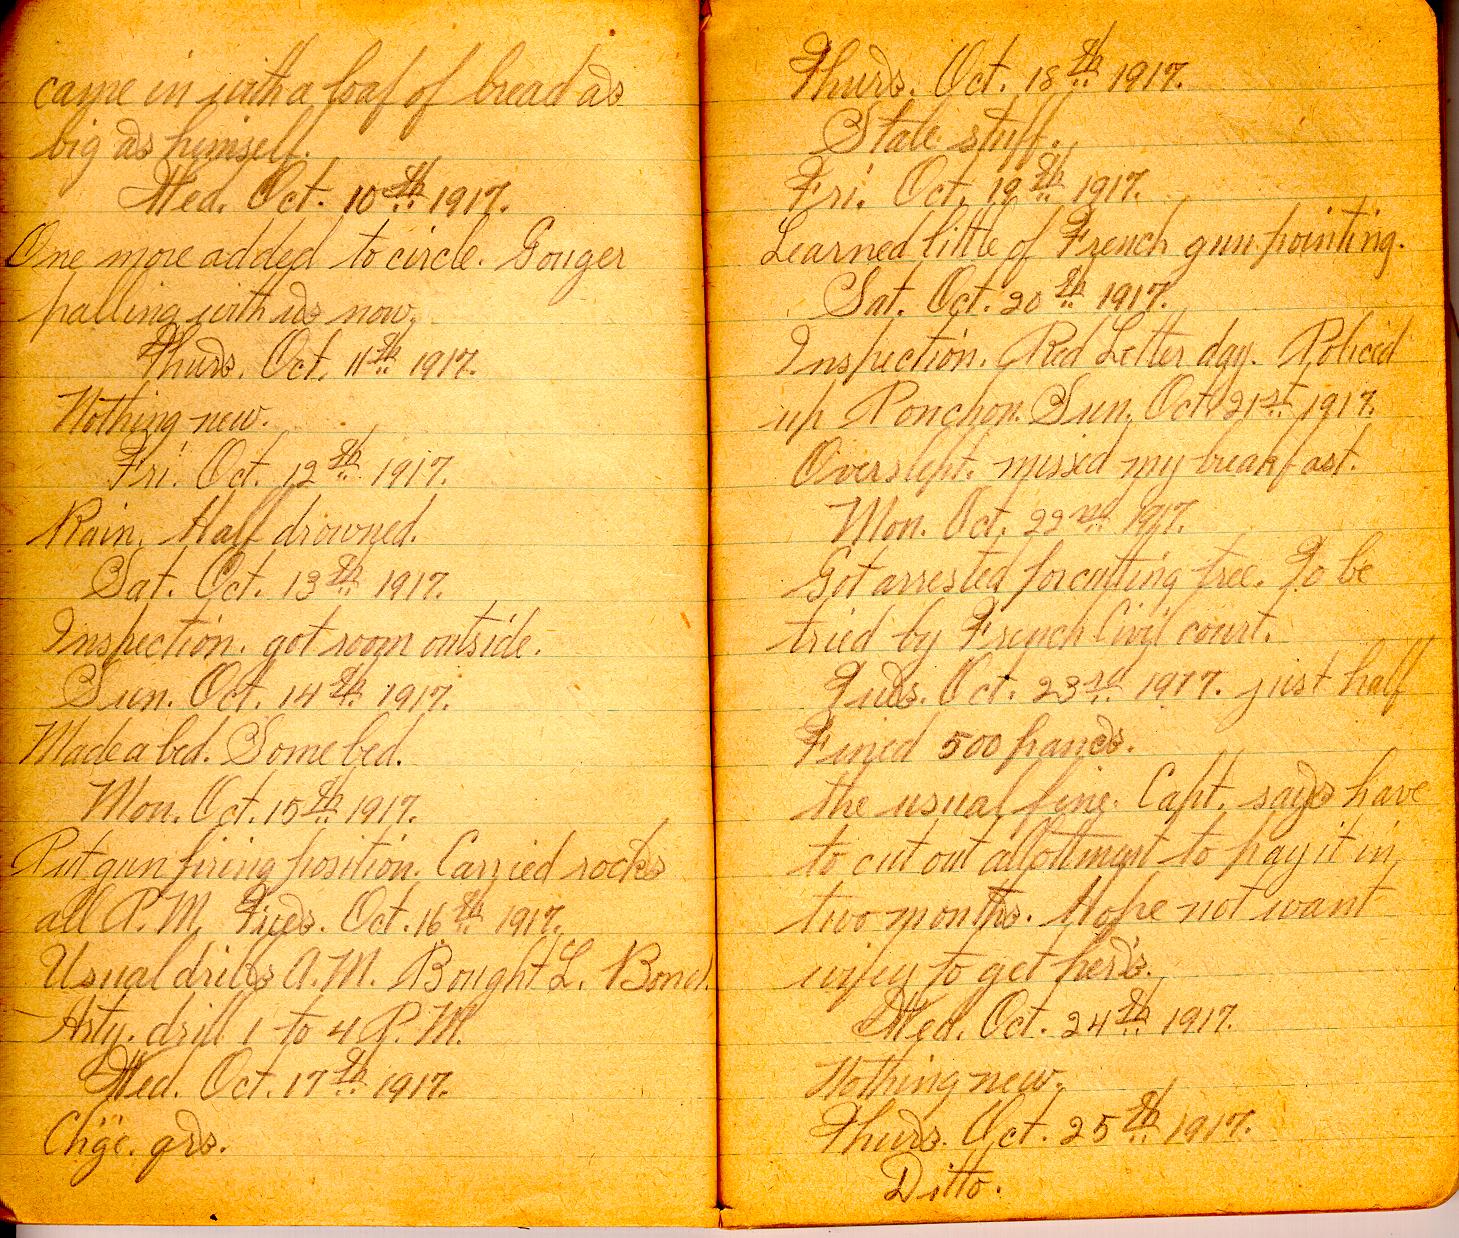 came in with a loaf of bread as
big as himself.
Wed. Oct. 10th 1917.
One more added to circle. Gouger
palling with us now.
Thurs. Oct. 11th 1917.
Nothing new.
Fri. Oct. 12th 1917.
Rain. Half drowned.
Sat. Oct. 13th 1917.
Inspection. got room outside.
Sun. Oct. 14th 1917.
Made a bed. Some bed.
Mon. Oct. 15th 1917.
Put gun firing position. Carried rocks
all P.M. Tues. Oct. 16th 1917.
Usual drills A.M. Bought L. Bond.
Arty. drill 1 to 4 P.M.
Wed. Oct. 17th 1917.
Chge. qrs.
Thurs. Oct. 18th 1917.
Stale stuff.
Fri. Oct. 19th 1917.
Learned little of French gun pointing.
Sat. Oct. 20th 1917.
Inspection. Red Letter day. Policed
up Ponchon. Sun. Oct. 21st 1917.
Overslept. missed my breakfast.
Mon. Oct. 22nd 1917.
Got arrested for cutting tree. To be
tried by French Civil court.
Tues. Oct. 23rd 1917. just half
Fined 500 francs.
the usual fine. Capt. says have
to cut out allottment to pay it in
two months. Hope not want
wifey to get her's.
Wed. Oct. 24th 1917.
Nothing new.
Thurs. Oct. 25th 1917.
Ditto.